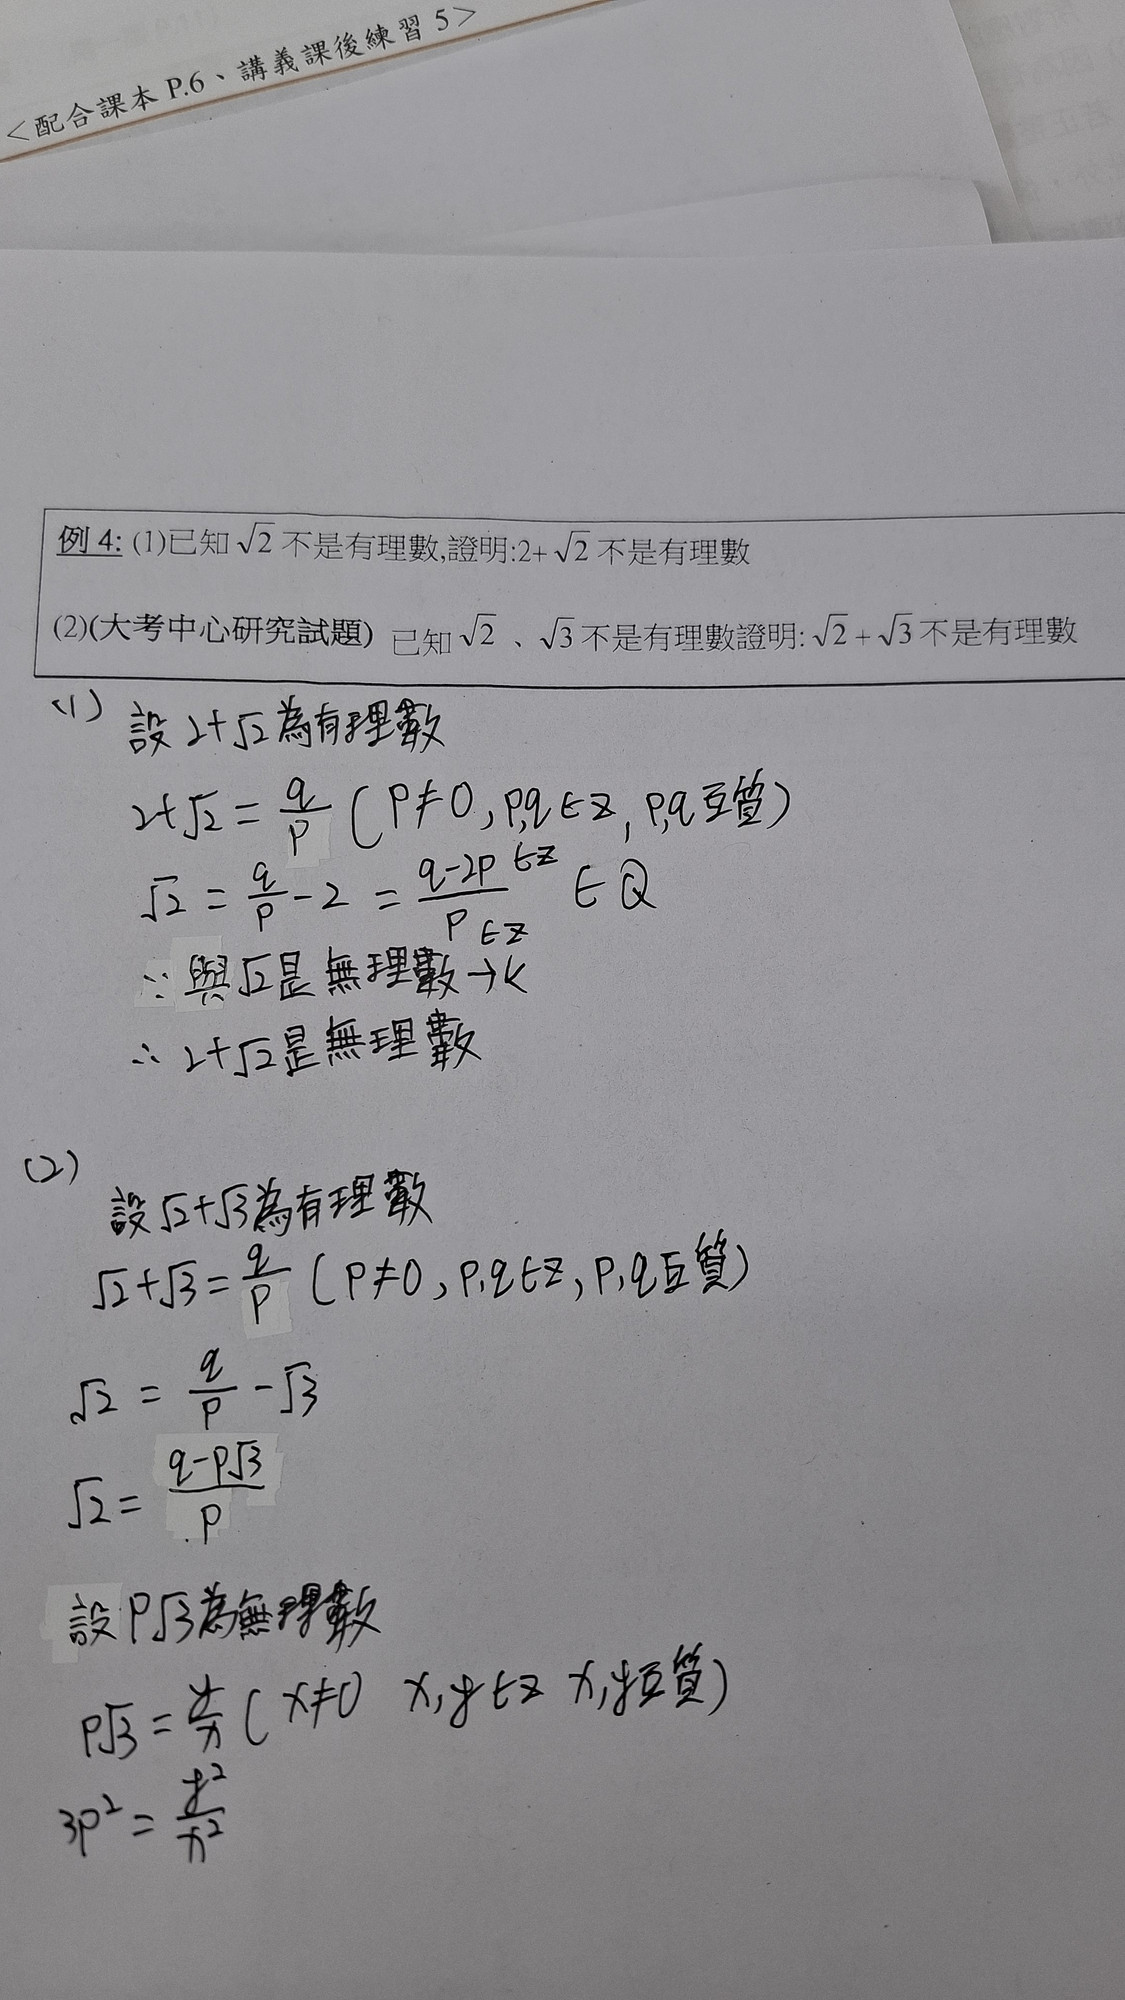 <配合課本 P.6、講義課後練習 5>
例 4: (1)已知 √2 不是有理數,證明:2+ √2 不是有理數
(2)(大考中心研究試題) 已知 √2 、 √3 不是有理數證明: √2 + √3 不是有理數
(1) 設 2+√2 為有理數
2+√2 = q/p ( p≠0, p,q∈Z, p,q 互質)
√2 = q/p - 2 = (q-2p ∈Z)/(p ∈Z) ∈ Q
∵ 與√2是無理數→←
∴ 2+√2是無理數
(2) 設√2+√3為有理數
√2+√3 = q/p ( p≠0, p,q∈Z, p,q互質)
√2 = q/p - √3
√2 = (q-p√3)/p
設 p√3為無理數
p√3 = y/x ( x≠0 x,y∈Z x,y互質)
3p² = y²/x²